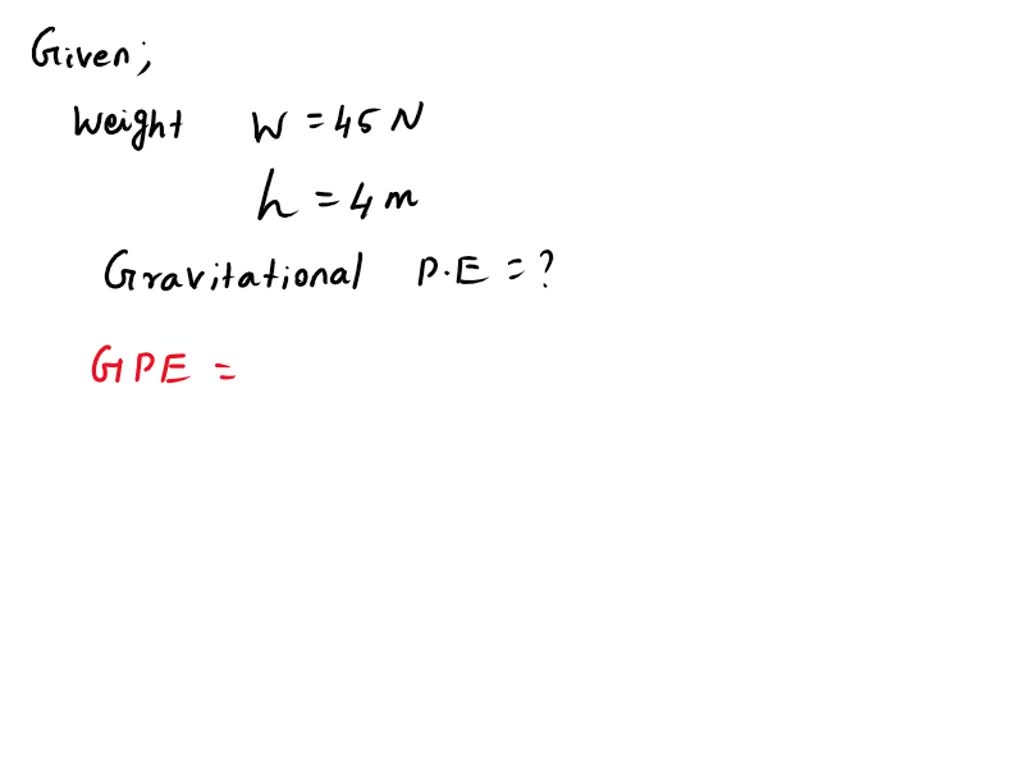 Given;
Weight W = 45 N
h = 4 m
Gravitational P.E = ?
GPE =